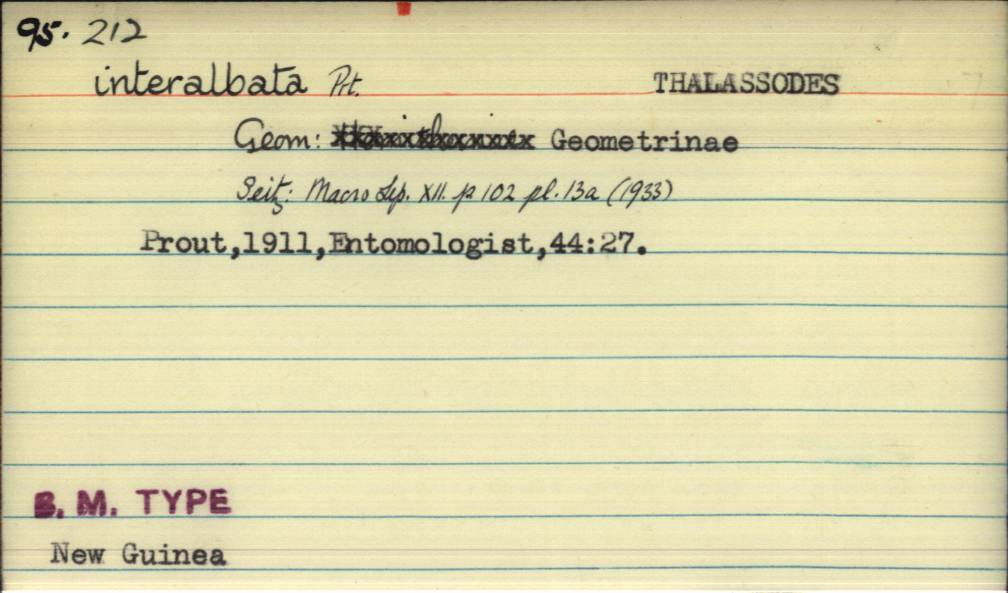 95. 212
interalbata Prt. THALASSODES
Geom: Geometrinae
Seitz: Macro Lep. XII. p 102 pl. 13a (1933)
Prout,1911,Entomologist,44:27.
B. M. TYPE
New Guinea